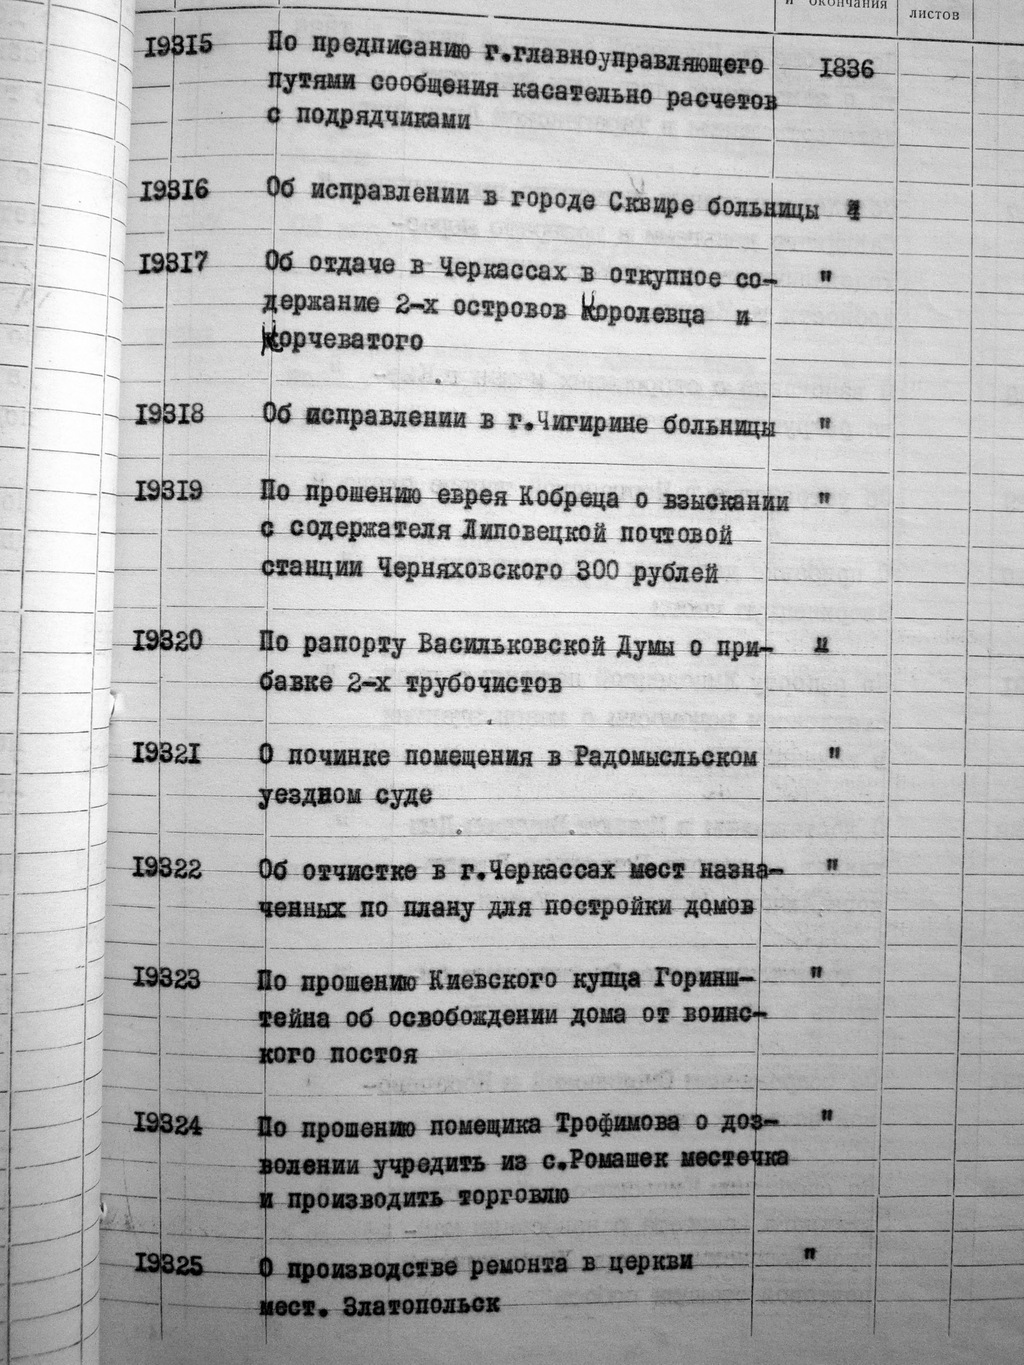 и окончания
листов
19315 По предписанию г.главноуправляющего 1836
путями сообщения касательно расчетов
с подрядчиками
19316 Об исправлении в городе Сквире больницы
19317 Об отдаче в Черкассах в откупное со- "
держание 2-х островов Королевца и
Корчеватого
19318 Об исправлении в г.Чигирине больницы "
19319 По прошению еврея Кобреца о взыскании "
с содержателя Липовецкой почтовой
станции Черняховского 300 рублей
19320 По рапорту Васильковской Думы о при- "
бавке 2-х трубочистов
19321 О починке помещения в Радомысльском "
уездном суде
19322 Об отчистке в г.Черкассах мест назна- "
ченных по плану для постройки домов
19323 По прошению Киевского купца Горинш- "
тейна об освобождении дома от воинс-
кого постоя
19324 По прошению помещика Трофимова о доз- "
волении учредить из с.Ромашек местечка
и производить торговлю
19325 О производстве ремонта в церкви "
мест. Златопольск